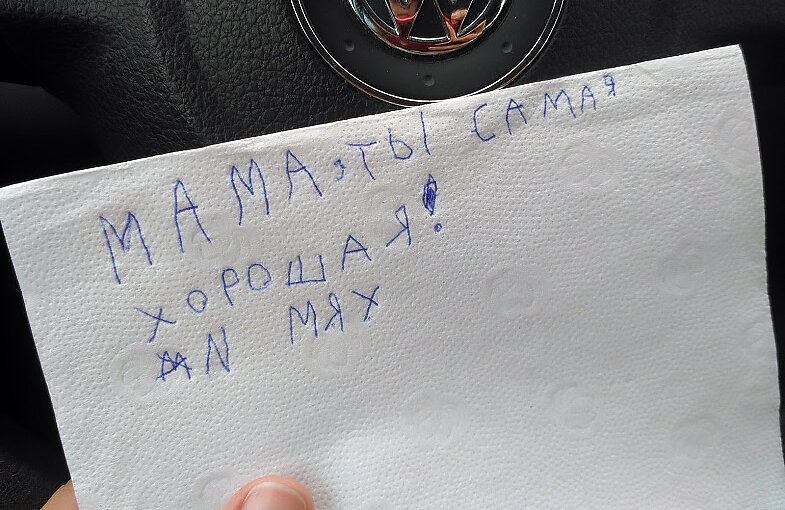 МАМА, ТЫ САМАЯ
ХОРОШАЯ!
И МЯХ